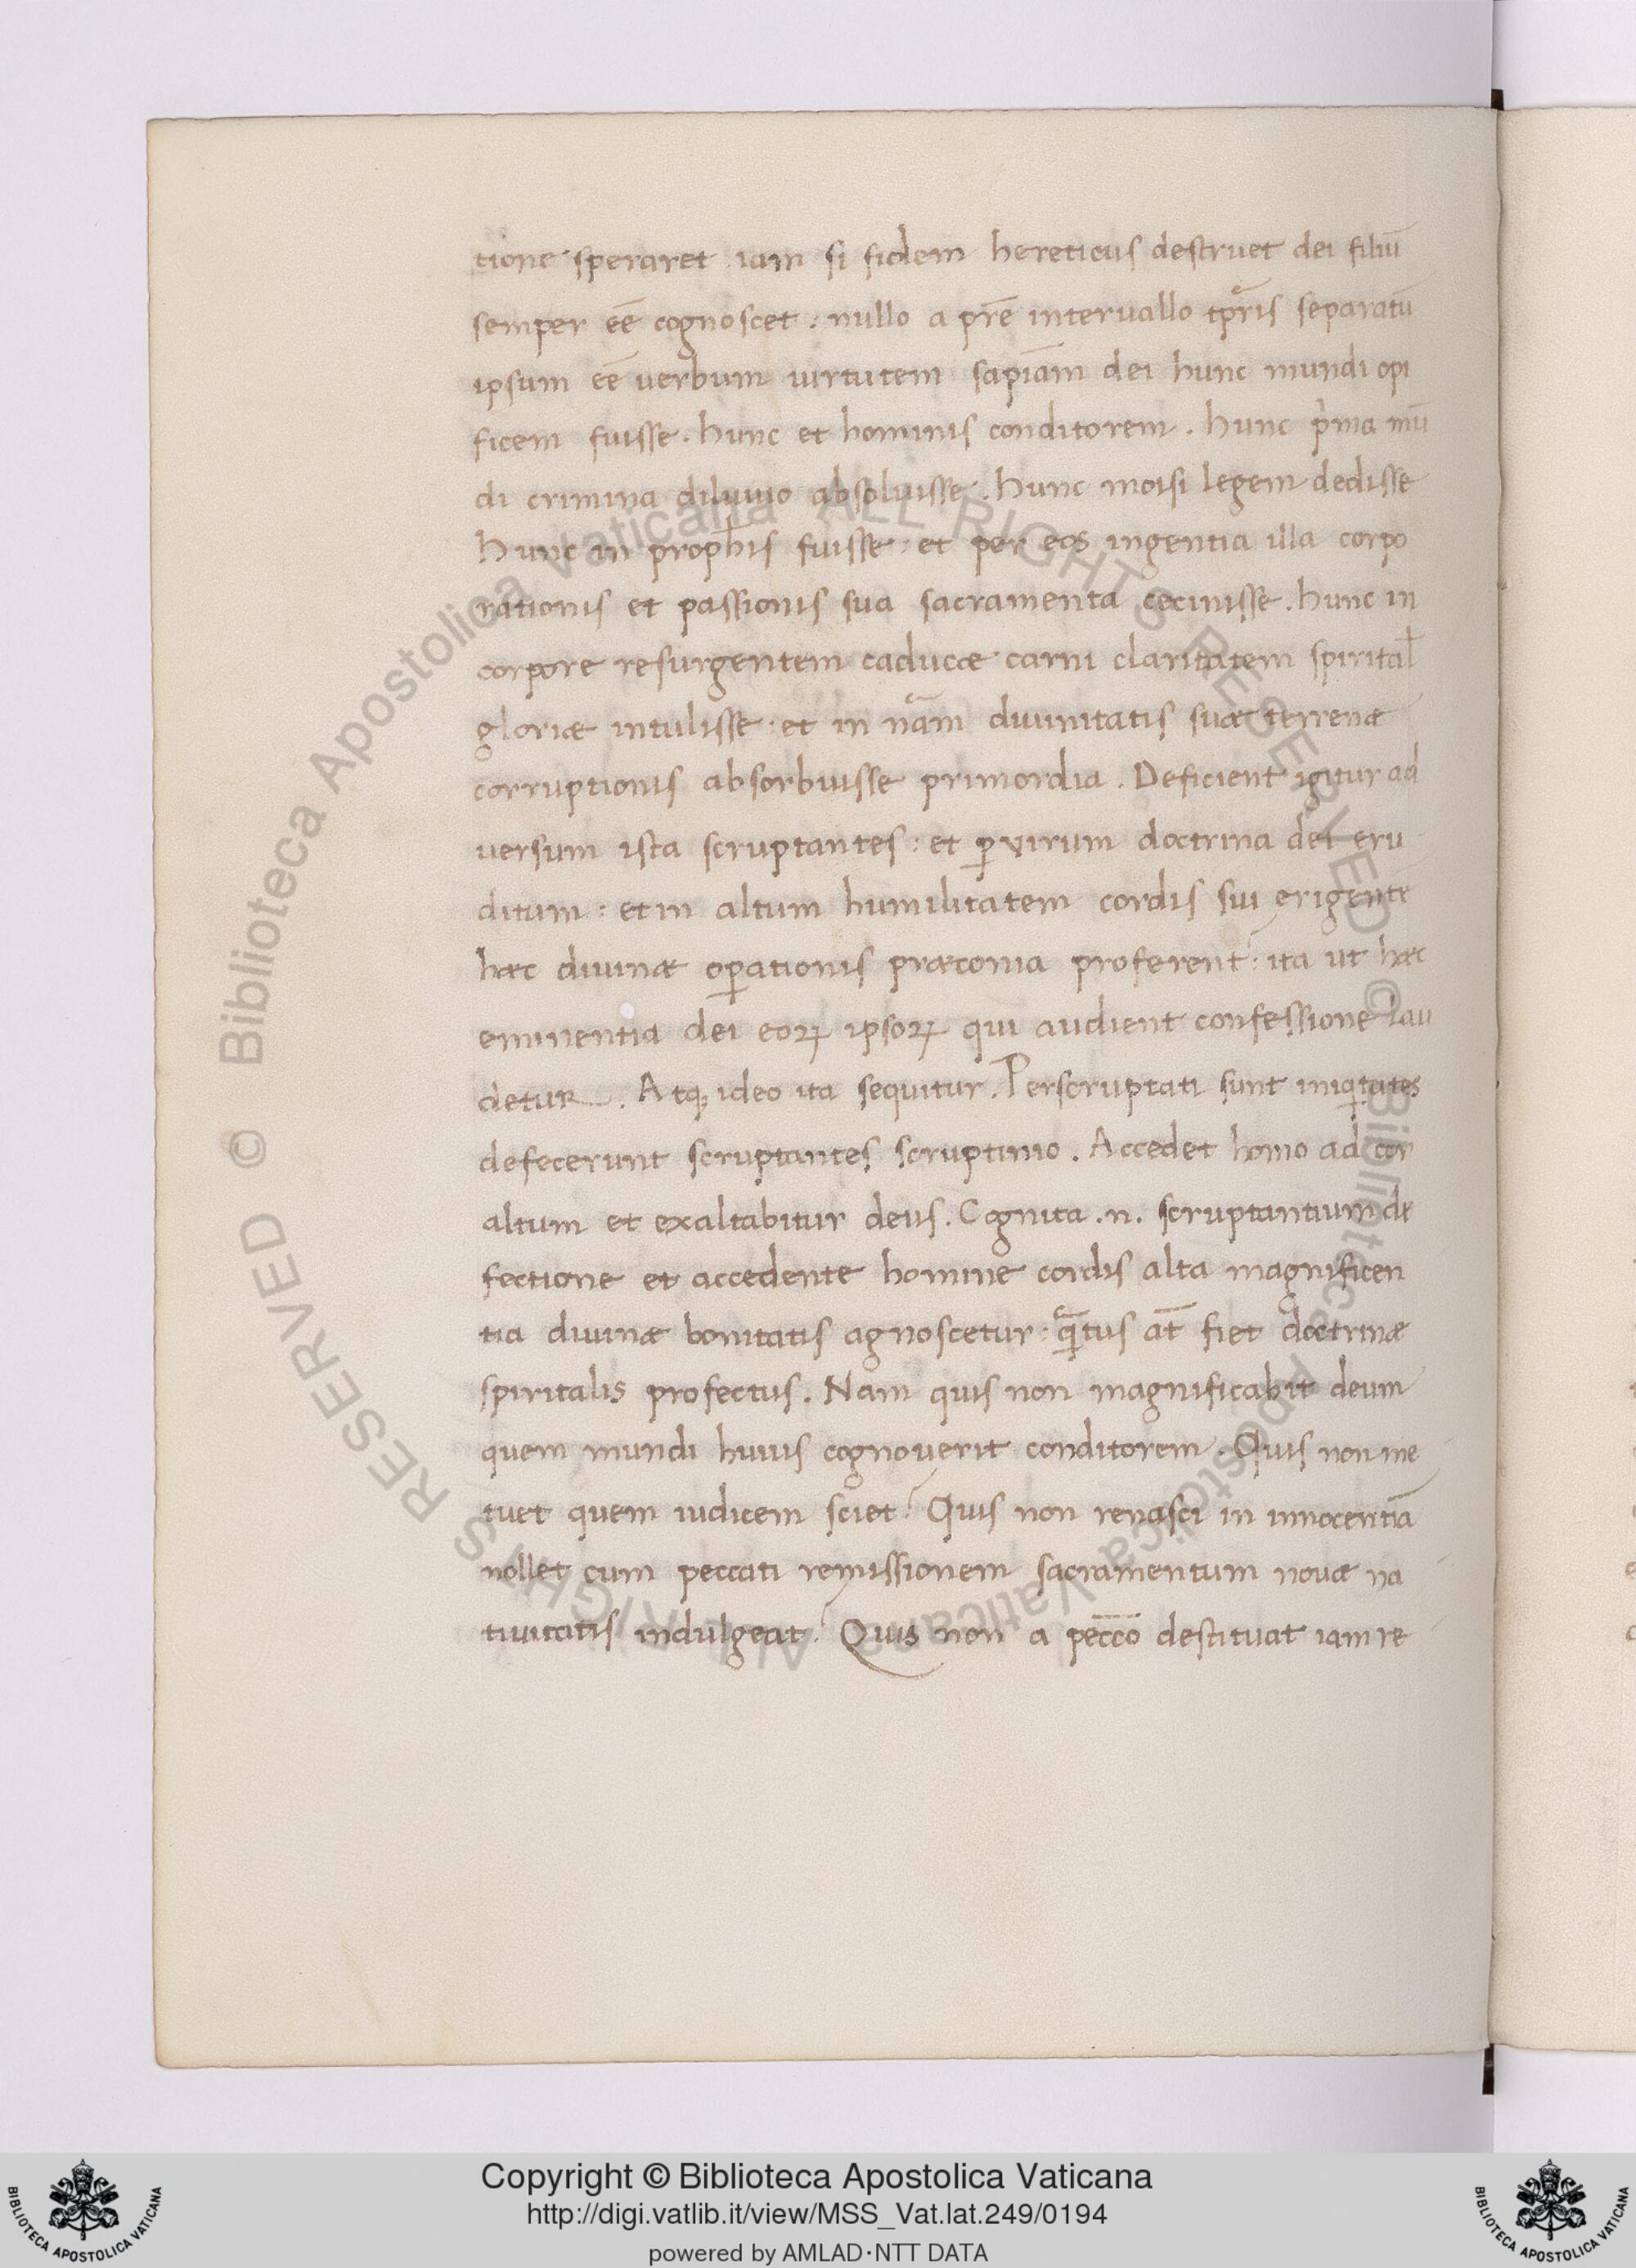 tione speraret iam si fidem hereticus destruet dei filiū
semper eē cognoscet : nullo a prē interuallo tp̄ris separatū
ipsum eē uerbum uirtutem sapiām dei hunc mundi opi
ficem fuisse . hunc et hominis conditorem . hunc pima mū
di crimina diluuio absoluisse . hunc moisi legem dedisse
hunc in prophis fuisse : et per eos ingentia illa corpo
rationis et passionis sua sacramenta cecinisse . hunc in
corpore resurgentem caducæ carni claritatem spirital
gloriæ intulisse : et in nām diuinitatis suæ terrenæ
corruptionis absorbuisse primordia . Deficient igitur ad
uersum ista scruptantes : et ꝑ virum doctrina dei eru
ditum : et in altum humilitatem cordis sui erigentē
hæc diuinæ oꝑationis præconia proferent : ita ut hæc
eminentia dei eoꝝ ipsoꝝ qui audient confessione lau
detur . Atq; ideo ita sequitur . Perscruptati sunt iniqtates
defecerunt scruptantes scruptinio . Accedet homo ad cor
altum et exaltabitur deus . Cognita .n. scruptantium de
fectione et accedente homine cordis alta magnificen
tia diuinæ bonitatis agnoscetur : q̄tus āt fiet doctrinæ
spiritalis profectus . Nam quis non magnificabit deum
quem mundi huius cognouerit conditorem . Quis non me
tuet quem iudicem sciet ? Quis non renasci in innocentiā
nollet cum peccati remissionem sacramentum nouæ na
tiuitatis indulgeat ? Quis non a pecc̄o destituat iam re
Copyright © Biblioteca Apostolica Vaticana
http://digi.vatlib.it/view/MSS_Vat.lat.249/0194
powered by AMLAD·NTT DATA
BIBLIOTECA APOSTOLICA VATICANA
BIBLIOTECA APOSTOLICA VATICANA
© Biblioteca Apostolica Vaticana ALL RIGHTS RESERVED © Biblioteca Apostolica Vaticana ALL RIGHTS RESERVED